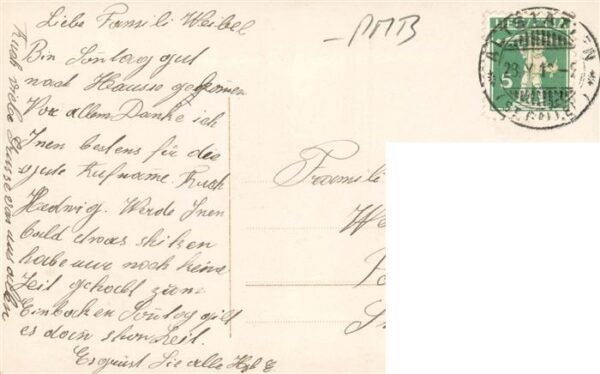 Liebe Familli Weibel
Bin Sontag gut
nach Hausse gekommen
Vor allem Danke ich
Inen bestens für die
gute Aufname. Auch
Hedwig. Werde Inen
bald etwas shiken
habe nur noch keine
Zeit gehabt zum
Einbacken Sontag gibt
es dan shon Zeit.
Es grüsst Sie alle
Auch viele Grüsse von uns allen
PMB
Famili
We
ALTSTÄTTEN
(ST. GALLEN)
5